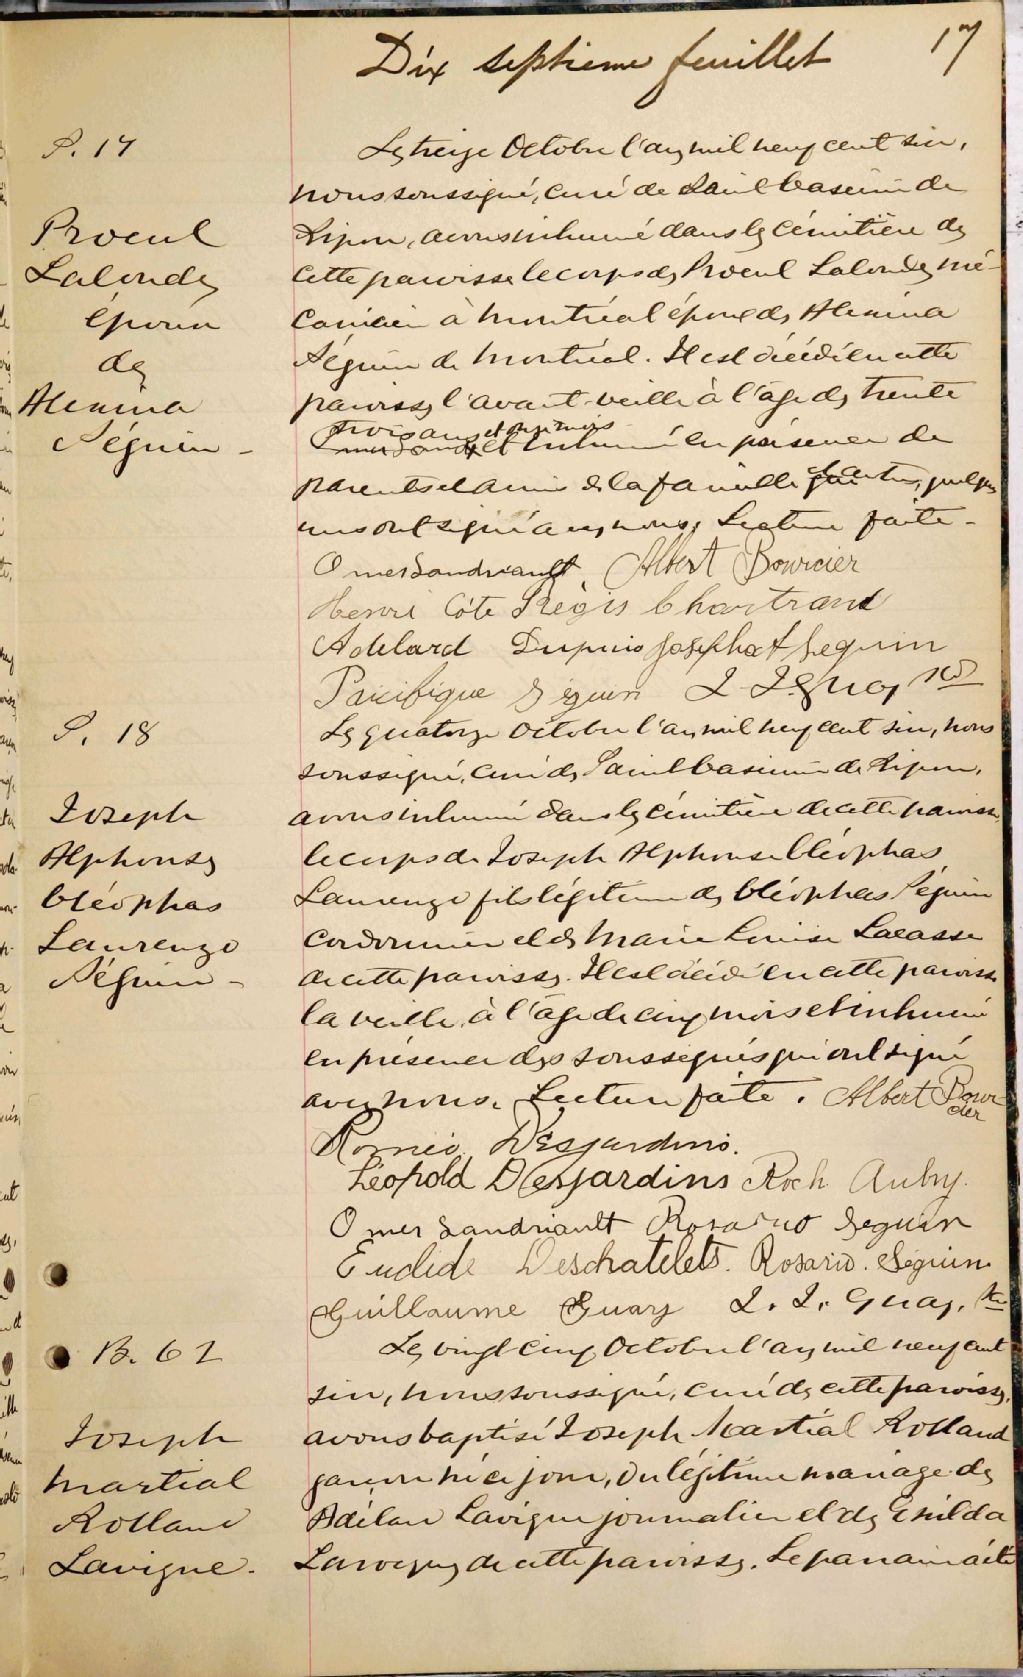 Dix septieme feuillet
17
S. 17
Proeul
Lalonde
époux
de
Alexina
Séguin -
Le treize Octobre l'an mil neuf cent six,
nous soussigné, curé de Saint Casimir de
Ripon, avons inhumé dans le cémitière de
cette paroisse le corps de Proeul Lalonde, mé-
canicien à Montréal époux de Alexina
Séguin de Montréal. Il est décédé en cette
paroisse l'avant-veille à l'âge de trente
trois ans et onze mois
et inhumé en présence de
parents et amis de la famille quelques
uns ont signé avec nous, Lecture faite -
Omer Landriault. Albert Bourcier
Henri Côté Régis Chartrand
Adelard Dupuis Josephat Seguin
Pacifique Séguin L. L. Guay Ptre
S. 18
Joseph
Alphonse
Cléophas
Laurenzo
Séguin -
Le quatorze Octobre l'an mil neuf cent six, nous
soussigné, curé de Saint Casimir de Ripon,
avons inhumé dans le cémitière de cette paroisse,
le corps de Joseph Alphonse Cléophas
Laurenzo fils légitime de Cléophas Séguin
cordonnier et de Marie Louise Lacasse
de cette paroisse. Il est décédé en cette paroisse
la veille, à l'âge de cinq mois et inhumé
en présence des soussignés qui ont signé
avec nous. Lecture faite. Albert Bour-
cier
Roméo Desjardins.
Léopold Desjardins Roch Aubry.
Omer Landriault Rosario Seguin
Euclide Deschatelets. Rosario. Séguin.
Guillaume Guay L. L. Guay, Ptre
B. 62
Joseph
Martial
Rolland
Lavigne.
Le vingt cinq Octobre l'an mil neuf cent
six, nous soussigné, curé de cette paroisse,
avons baptisé Joseph Martial Rolland
garçon né ce jour, du légitime mariage de
Adélard Lavigne journalier et de Exilda
Larocque de cette paroisse. Le parrain a été